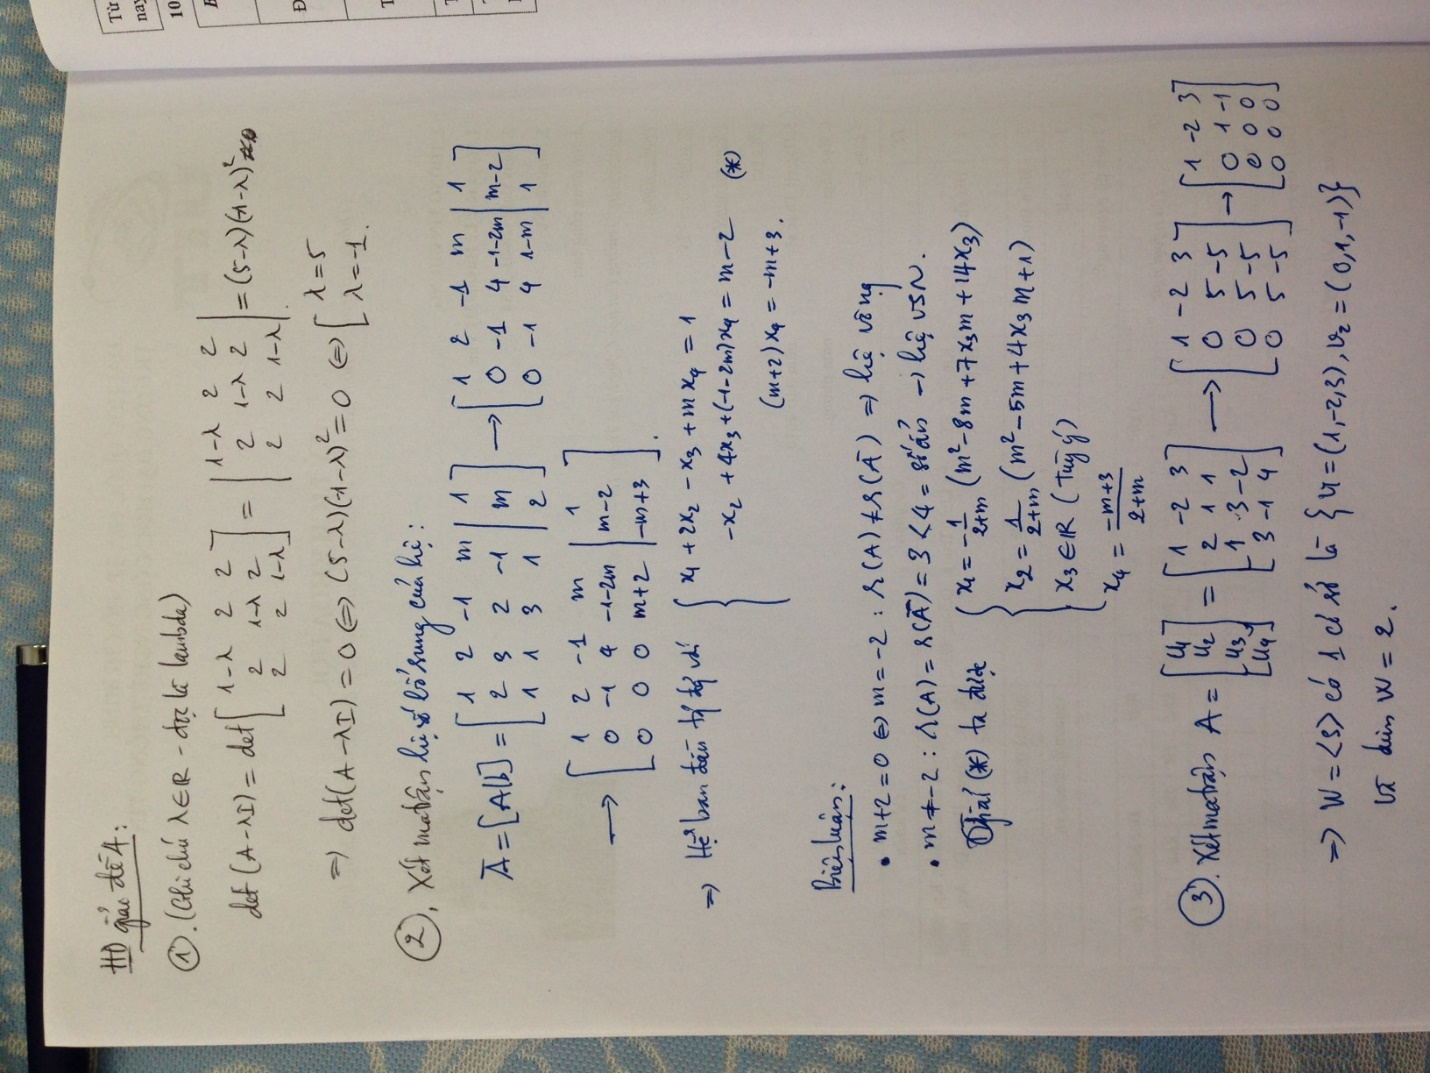 HD giải đề 4:
①. (Ghi chú λ∈R - đọc là lambda)
det(A-λI) = det[1-λ 2 2; 2 1-λ 2; 2 2 1-λ] = |1-λ 2 2; 2 1-λ 2; 2 2 1-λ| = (5-λ)(-1-λ)²
⇒ det(A-λI) = 0 ⇔ (5-λ)(-1-λ)² = 0 ⇔ [λ=5; λ=-1.
②, Xét ma trận hệ số bổ sung của hệ:
Ā = [A|b] = [1 2 -1 m | 1; 2 3 2 -1 | m; 1 1 3 1 | 2] → [1 2 -1 m | 1; 0 -1 4 -1-2m | m-2; 0 -1 4 1-m | 1]
→ [1 2 -1 m | 1; 0 -1 4 -1-2m | m-2; 0 0 0 m+2 | -m+3].
⇒ Hệ ban đầu tg đg với { x₁ + 2x₂ - x₃ + mx₄ = 1
-x₂ + 4x₃ + (-1-2m)x₄ = m-2 (*)
(m+2)x₄ = -m+3.
Biện luận:
• m+2=0 ⇔ m=-2: r(A) ≠ r(Ā) ⇒ hệ vô ng
• m≠-2: r(A) = r(Ā) = 3 < 4 = số ẩn → hệ VSN.
Giải (*) ta được { x₁ = -1/(2+m) (m²-8m+7x₃m+14x₃)
x₂ = 1/(2+m) (m²-5m+4x₃m+1)
x₃∈R (tùy ý)
x₄ = (-m+3)/(2+m)
③. Xét ma trận A = [u₁; u₂; u₃; u₄] = [1 -2 3; 2 1 1; 1 3 -2; 3 -1 4] → [1 -2 3; 0 5 -5; 0 5 -5; 0 5 -5] → [1 -2 3; 0 1 -1; 0 0 0; 0 0 0]
⇒ W = <S> có 1 cơ sở là {v₁=(1,-2,3), v₂=(0,1,-1)}
và dim W = 2.
Từ
nay
10